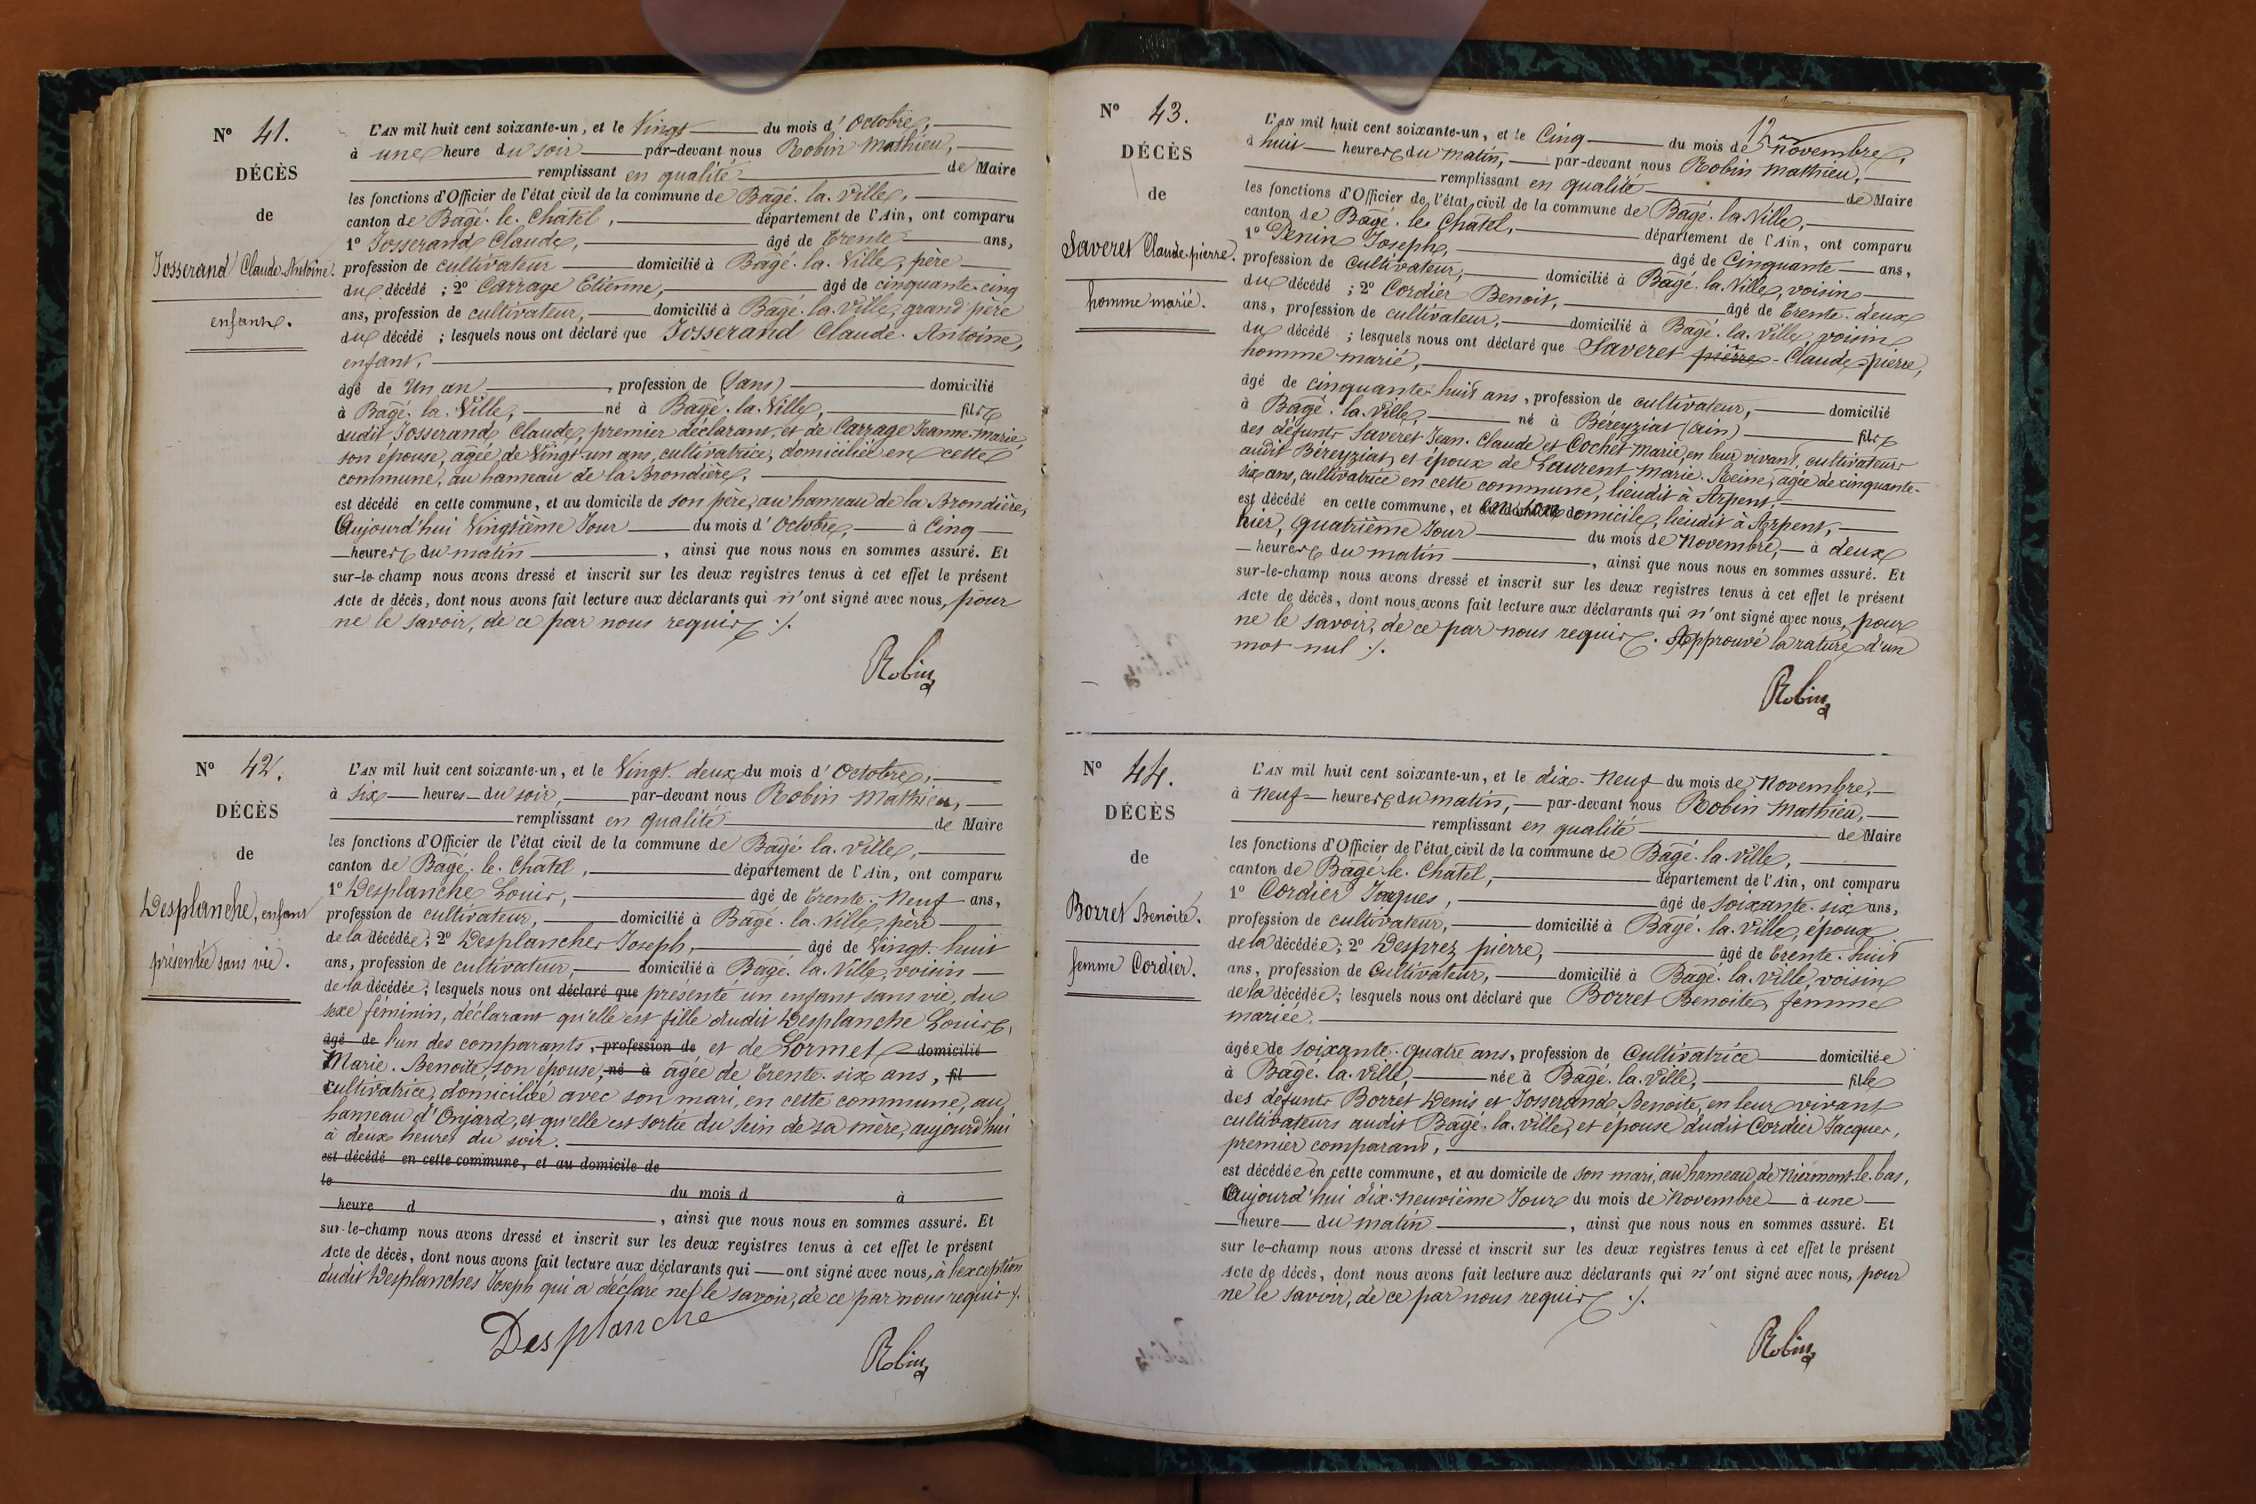 N° 41.
DÉCÈS
de
Josserand Claude-Antoine.
enfant.
L'AN mil huit cent soixante-un, et le Vingt du mois d'Octobre,
à une heure du soir par-devant nous Robin Mathieu,
remplissant en qualité de Maire
les fonctions d'Officier de l'état civil de la commune de Bagé-la-Ville,
canton de Bagé-le-Châtel, département de l'Ain, ont comparu
1° Josserand Claude, âgé de Trente ans,
profession de cultivateur domicilié à Bagé-la-Ville, père
du décédé ; 2° Carrage Etienne, âgé de cinquante-cinq
ans, profession de cultivateur, domicilié à Bagé-la-Ville, grand père
du décédé ; lesquels nous ont déclaré que Josserand Claude-Antoine,
enfant,
âgé de Un an, profession de (sans) domicilié
à Bagé-la-Ville, né à Bagé-la-Ville, fils
dudit Josserand Claude, premier déclarant, et de Carrage Jeanne-Marie
son épouse, agée de Vingt-un ans, cultivatrice, domiciliée en cette
commune, au hameau de la Brondière,
est décédé en cette commune, et au domicile de son père, au hameau de la Brondière,
Aujourd'hui Vingtième Jour du mois d'Octobre, à Cinq
heures du matin, ainsi que nous nous en sommes assuré. Et
sur-le-champ nous avons dressé et inscrit sur les deux registres tenus à cet effet le présent
Acte de décès, dont nous avons fait lecture aux déclarants qui n'ont signé avec nous, pour
ne le savoir, de ce par nous requis ./.
Robin
N° 42.
DÉCÈS
de
Desplanche, enfant
présentée sans vie.
L'AN mil huit cent soixante-un, et le Vingt-deux du mois d'Octobre,
à six heures du soir, par-devant nous Robin Mathieu,
remplissant en qualité de Maire
les fonctions d'Officier de l'état civil de la commune de Bagé-la-Ville,
canton de Bagé-le-Châtel, département de l'Ain, ont comparu
1° Desplanche Louis, âgé de Trente-Neuf ans,
profession de cultivateur, domicilié à Bagé-la-Ville, père
de la décédée; 2° Desplanches Joseph, âgé de Vingt-huit
ans, profession de cultivateur, domicilié à Bagé-la-Ville, voisin
de la décédée; lesquels nous ont déclaré que présenté un enfant sans vie, du
sexe féminin, déclarant qu'elle est fille dudit Desplanche Louis,
âgé de l'un des comparants, profession de et de Lormet domicilié
Marie-Benoite, son épouse, né à agée de Trente-six ans, fil
cultivatrice, domiciliée avec son mari, en cette commune, au
hameau d'Onjard, et qu'elle est sortie du sein de sa mère, aujourd'hui
à deux heures du soir.
est décédé en cette commune, et au domicile de
le du mois d à
heure d, ainsi que nous nous en sommes assuré. Et
sur-le-champ nous avons dressé et inscrit sur les deux registres tenus à cet effet le présent
Acte de décès, dont nous avons fait lecture aux déclarants qui ont signé avec nous, à l'exception
dudit Desplanches Joseph qui a déclaré ne le savoir, de ce par nous requis ./.
Desplanche
Robin
N° 43.
DÉCÈS
de
Saveret Claude-pierre.
homme marié.
12
L'AN mil huit cent soixante-un, et le Cinq du mois de novembre,
à huit heures du matin, par-devant nous Robin Mathieu,
remplissant en qualité de Maire
les fonctions d'Officier de l'état civil de la commune de Bagé-la-Ville,
canton de Bagé-le-Châtel, département de l'Ain, ont comparu
1° Penin Joseph, âgé de Cinquante ans,
profession de cultivateur, domicilié à Bagé-la-Ville, voisin
du décédé ; 2° Cordier Benoit, âgé de Trente-deux
ans, profession de cultivateur, domicilié à Bagé-la-Ville voisin
du décédé ; lesquels nous ont déclaré que Saveret pierre-Claude-pierre,
homme marié,
âgé de cinquante-huit ans, profession de cultivateur, domicilié
à Bagé-la-Ville, né à Béreyziat (ain) fils
des défunts Saveret Jean-Claude et Cochet Marie, en leur vivant, cultivateurs
audit Béreyziat, et époux de Laurent Marie-Reine, âgée de cinquante-
six ans, cultivatrice en cette commune, lieudit à Arpent,
est décédé en cette commune, et en son domicile, lieudit à Arpent,
hier, quatrième Jour du mois de Novembre, à deux
heures du matin, ainsi que nous nous en sommes assuré. Et
sur-le-champ nous avons dressé et inscrit sur les deux registres tenus à cet effet le présent
Acte de décès, dont nous avons fait lecture aux déclarants qui n'ont signé avec nous, pour
ne le savoir, de ce par nous requis. Approuvé la rature d'un
mot nul ./.
Robin
N° 44.
DÉCÈS
de
Borret Benoite.
femme Cordier.
L'AN mil huit cent soixante-un, et le dix-Neuf du mois de Novembre,
à Neuf heures du matin, par-devant nous Robin Mathieu,
remplissant en qualité de Maire
les fonctions d'Officier de l'état civil de la commune de Bagé-la-Ville,
canton de Bagé-le-Châtel, département de l'Ain, ont comparu
1° Cordier Jaques, âgé de soixante-six ans,
profession de cultivateur, domicilié à Bagé-la-Ville, époux
de la décédée; 2° Desprez pierre, âgé de Trente-huit
ans, profession de Cultivateur, domicilié à Bagé-la-Ville, voisin
de la décédée; lesquels nous ont déclaré que Borret Benoite, femme
mariée.
âgée de soixante-quatre ans, profession de Cultivatrice domiciliée
à Bagé-la-Ville, née à Bagé-la-Ville, fille
des défunts Borret Denis et Josserand Benoite, en leur vivant
cultivateurs audit Bagé-la-Ville, et épouse dudit Cordier Jacques,
premier comparant,
est décédée en cette commune, et au domicile de son mari, au hameau de Niermont-le-bas,
Aujourd'hui dix-neuvième Jour du mois de Novembre à une
heure du matin, ainsi que nous nous en sommes assuré. Et
sur le-champ nous avons dressé et inscrit sur les deux registres tenus à cet effet le présent
Acte de décès, dont nous avons fait lecture aux déclarants qui n'ont signé avec nous, pour
ne le savoir, de ce par nous requis ./.
Robin